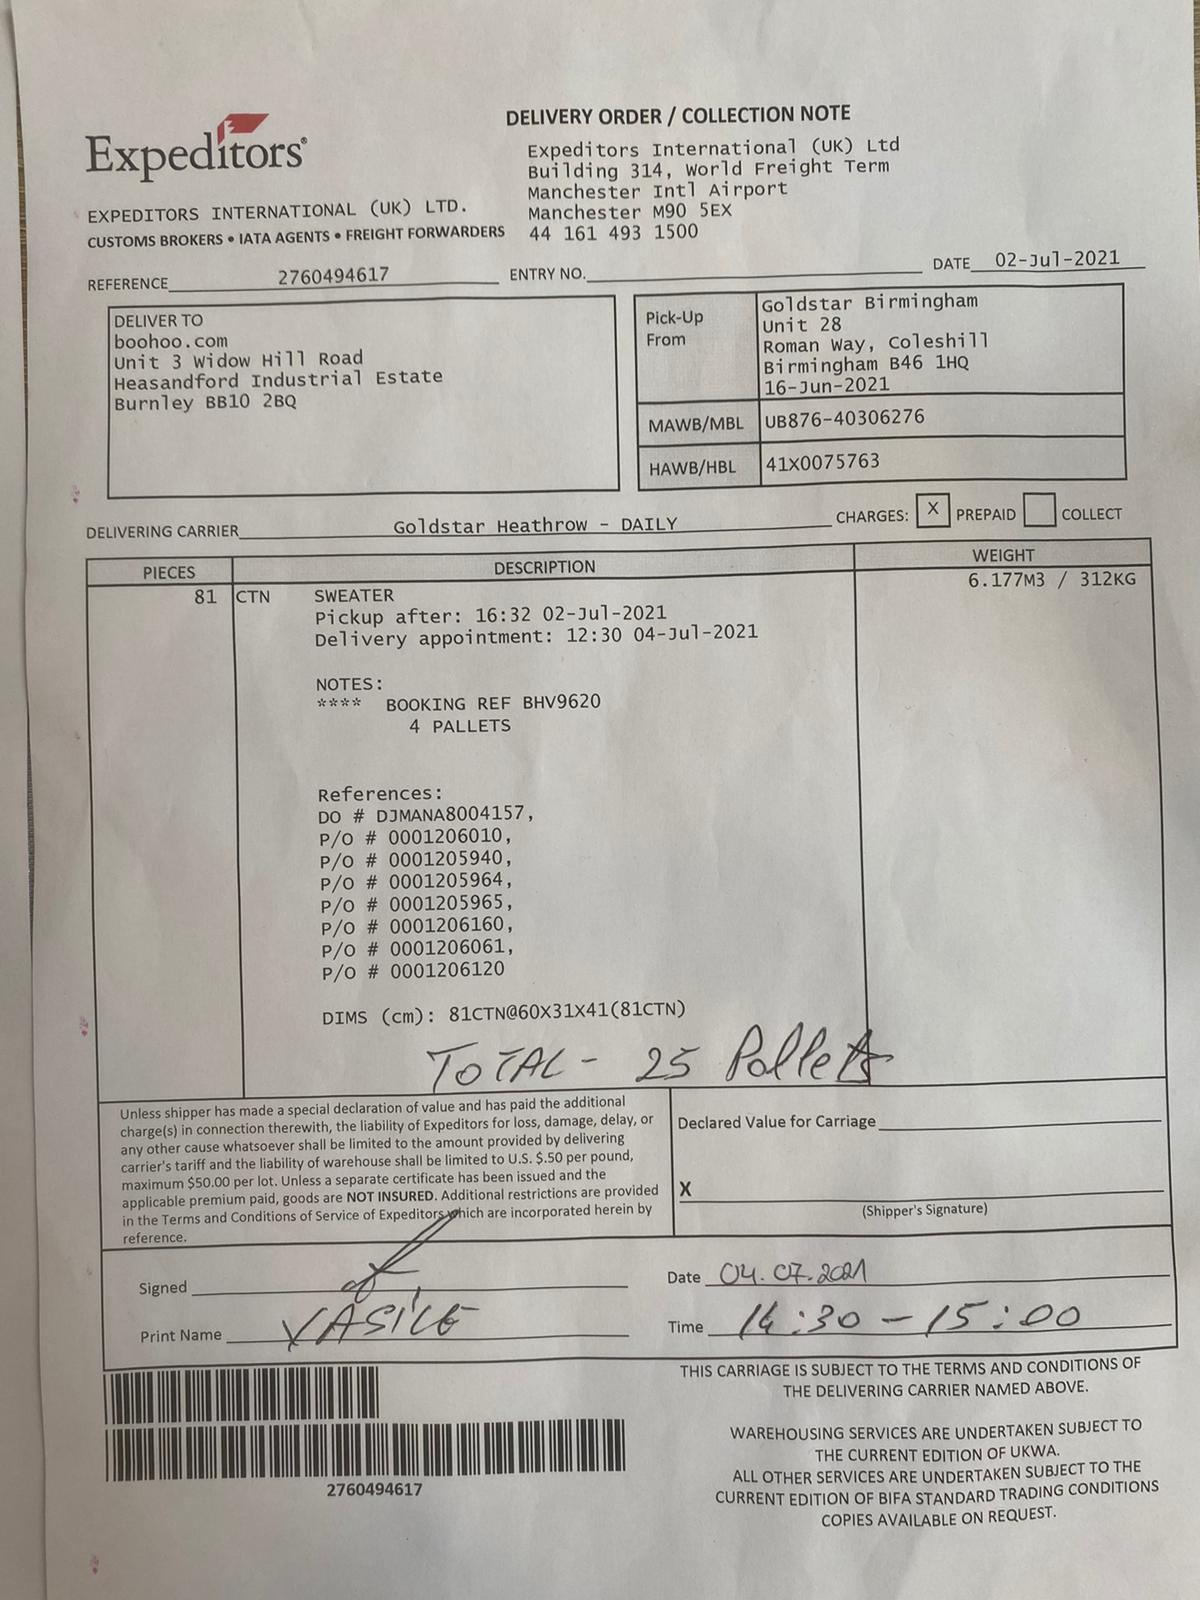 Expeditors®
EXPEDITORS INTERNATIONAL (UK) LTD.
CUSTOMS BROKERS • IATA AGENTS • FREIGHT FORWARDERS
DELIVERY ORDER / COLLECTION NOTE
Expeditors International (UK) Ltd
Building 314, World Freight Term
Manchester Intl Airport
Manchester M90 5EX
44 161 493 1500
REFERENCE 2760494617 ENTRY NO. DATE 02-Jul-2021
DELIVER TO
boohoo.com
Unit 3 Widow Hill Road
Heasandford Industrial Estate
Burnley BB10 2BQ
Pick-Up From
Goldstar Birmingham
Unit 28
Roman Way, Coleshill
Birmingham B46 1HQ
16-Jun-2021
MAWB/MBL UB876-40306276
HAWB/HBL 41X0075763
DELIVERING CARRIER Goldstar Heathrow - DAILY CHARGES: X PREPAID COLLECT
PIECES DESCRIPTION WEIGHT
81 CTN SWEATER 6.177M3 / 312KG
Pickup after: 16:32 02-Jul-2021
Delivery appointment: 12:30 04-Jul-2021
NOTES:
**** BOOKING REF BHV9620
4 PALLETS
References:
DO # DJMANA8004157,
P/O # 0001206010,
P/O # 0001205940,
P/O # 0001205964,
P/O # 0001205965,
P/O # 0001206160,
P/O # 0001206061,
P/O # 0001206120
DIMS (cm): 81CTN@60X31X41(81CTN)
TOTAL - 25 Pallets
Unless shipper has made a special declaration of value and has paid the additional
charge(s) in connection therewith, the liability of Expeditors for loss, damage, delay, or
any other cause whatsoever shall be limited to the amount provided by delivering
carrier's tariff and the liability of warehouse shall be limited to U.S. $.50 per pound,
maximum $50.00 per lot. Unless a separate certificate has been issued and the
applicable premium paid, goods are NOT INSURED. Additional restrictions are provided
in the Terms and Conditions of Service of Expeditors which are incorporated herein by
reference.
Declared Value for Carriage
X
(Shipper's Signature)
Signed
Date 04.07.2021
Print Name VASILE
Time 14:30 - 15:00
2760494617
THIS CARRIAGE IS SUBJECT TO THE TERMS AND CONDITIONS OF
THE DELIVERING CARRIER NAMED ABOVE.
WAREHOUSING SERVICES ARE UNDERTAKEN SUBJECT TO
THE CURRENT EDITION OF UKWA.
ALL OTHER SERVICES ARE UNDERTAKEN SUBJECT TO THE
CURRENT EDITION OF BIFA STANDARD TRADING CONDITIONS
COPIES AVAILABLE ON REQUEST.